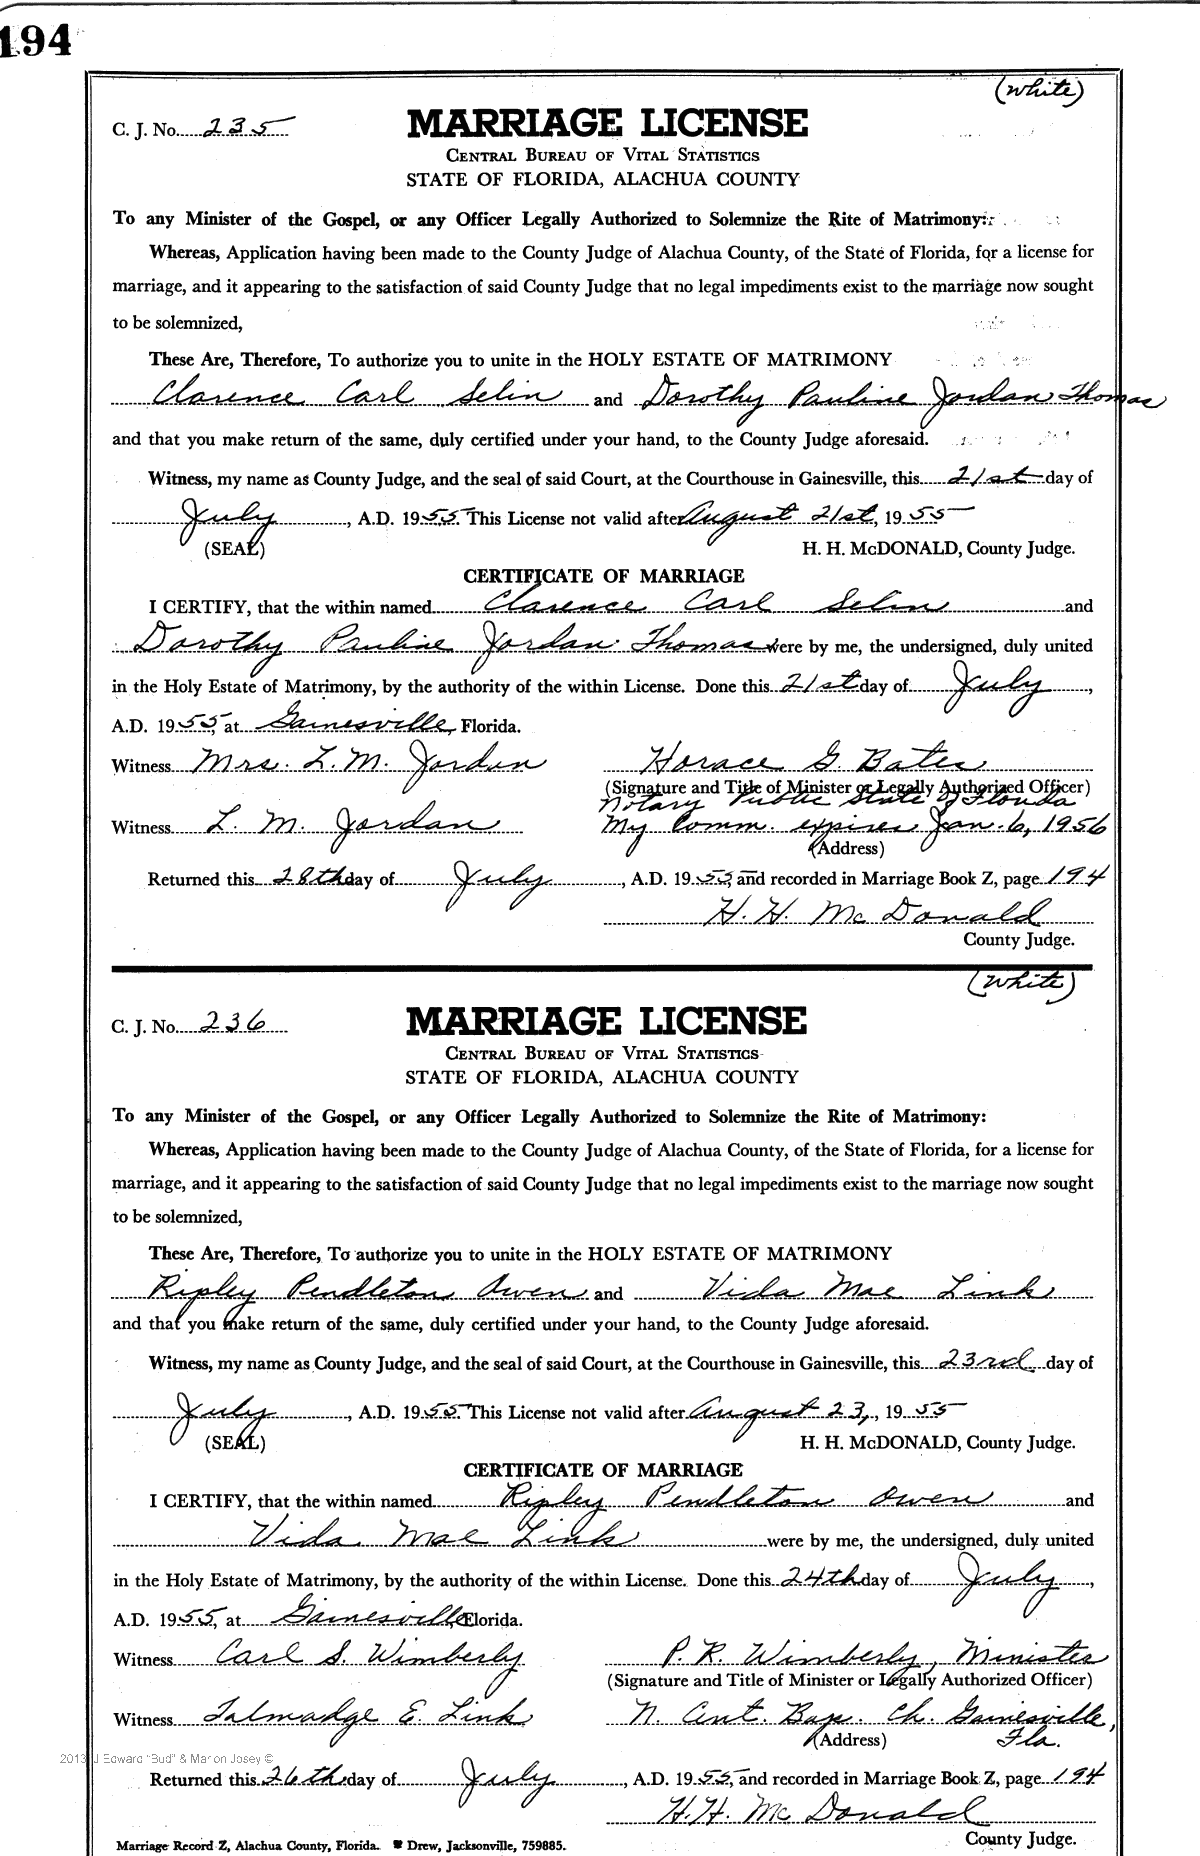 194
(White)
C. J. No. 235
MARRIAGE LICENSE
CENTRAL BUREAU OF VITAL STATISTICS
STATE OF FLORIDA, ALACHUA COUNTY
To any Minister of the Gospel, or any Officer Legally Authorized to Solemnize the Rite of Matrimony:
Whereas, Application having been made to the County Judge of Alachua County, of the State of Florida, for a license for
marriage, and it appearing to the satisfaction of said County Judge that no legal impediments exist to the marriage now sought
to be solemnized,
These Are, Therefore, To authorize you to unite in the HOLY ESTATE OF MATRIMONY
Clarence Carl Selin and Dorothy Pauline Jordan Thomas
and that you make return of the same, duly certified under your hand, to the County Judge aforesaid.
Witness, my name as County Judge, and the seal of said Court, at the Courthouse in Gainesville, this 21st day of
July, A.D. 1955. This License not valid after August 21st, 1955
(SEAL) H. H. McDONALD, County Judge.
CERTIFICATE OF MARRIAGE
I CERTIFY, that the within named Clarence Carl Selin and
Dorothy Pauline Jordan Thomas were by me, the undersigned, duly united
in the Holy Estate of Matrimony, by the authority of the within License. Done this 21st day of July,
A.D. 1955, at Gainesville, Florida.
Witness Mrs. L. M. Jordan Horace G. Bates
(Signature and Title of Minister or Legally Authorized Officer)
Notary Public State of Florida
Witness L. M. Jordan My Comm. expires Jan. 6, 1956
(Address)
Returned this 28th day of July, A.D. 1955, and recorded in Marriage Book Z, page 194
H. H. McDonald
County Judge.
(White)
C. J. No. 236
MARRIAGE LICENSE
CENTRAL BUREAU OF VITAL STATISTICS
STATE OF FLORIDA, ALACHUA COUNTY
To any Minister of the Gospel, or any Officer Legally Authorized to Solemnize the Rite of Matrimony:
Whereas, Application having been made to the County Judge of Alachua County, of the State of Florida, for a license for
marriage, and it appearing to the satisfaction of said County Judge that no legal impediments exist to the marriage now sought
to be solemnized,
These Are, Therefore, To authorize you to unite in the HOLY ESTATE OF MATRIMONY
Ripley Pendleton Owen and Vida Mae Link
and that you make return of the same, duly certified under your hand, to the County Judge aforesaid.
Witness, my name as County Judge, and the seal of said Court, at the Courthouse in Gainesville, this 23rd day of
July, A.D. 1955. This License not valid after August 23, 1955
(SEAL) H. H. McDONALD, County Judge.
CERTIFICATE OF MARRIAGE
I CERTIFY, that the within named Ripley Pendleton Owen and
Vida Mae Link were by me, the undersigned, duly united
in the Holy Estate of Matrimony, by the authority of the within License. Done this 24th day of July,
A.D. 1955, at Gainesville, Florida.
Witness Carl S. Wimberly P. R. Wimberly, Minister
(Signature and Title of Minister or Legally Authorized Officer)
Witness Talmadge E. Link N. Cent. Bap. Ch. Gainesville,
(Address) Fla.
2013 J Edward "Bud" & Marion Josey ©
Returned this 26th day of July, A.D. 1955, and recorded in Marriage Book Z, page 194
H. H. McDonald
County Judge.
Marriage Record Z, Alachua County, Florida. Drew, Jacksonville, 759885.